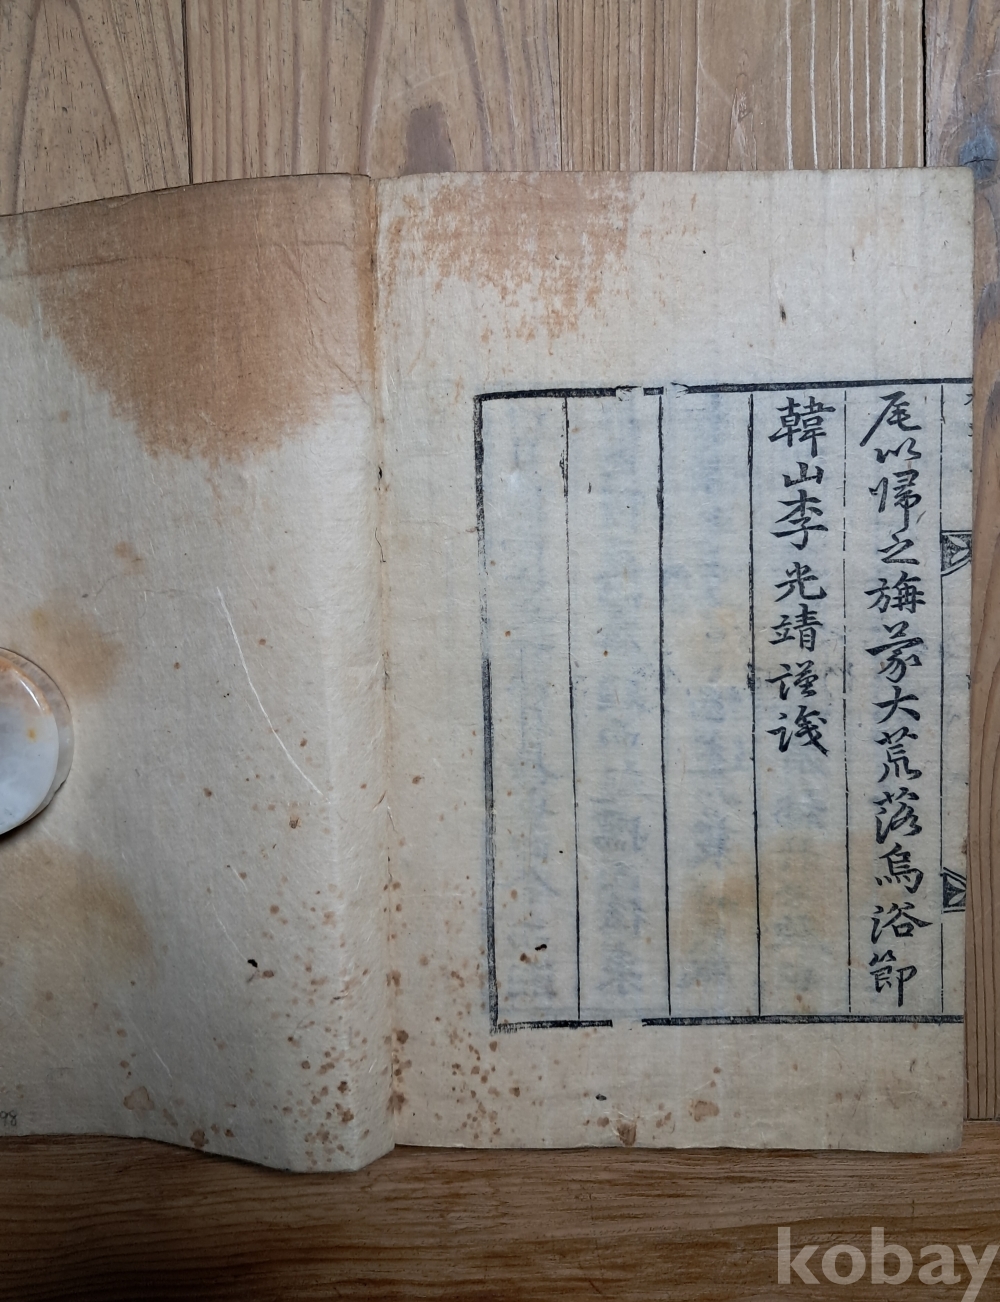 尾以歸之旃蒙大荒落烏浴節
韓山李光靖謹識
98
kobay